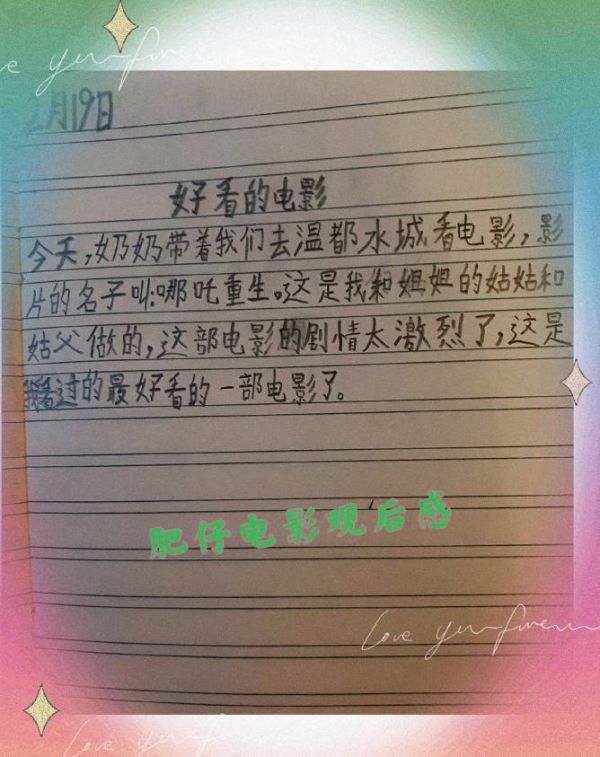 2月19日
好看的电影
今天,奶奶带着我们去温都水城看电影,影
片的名子叫:哪吒重生。这是我和姐姐的姑姑和
姑父做的,这部电影的剧情太激烈了,这是
我看过的最好看的一部电影了。
肥仔电影观后感